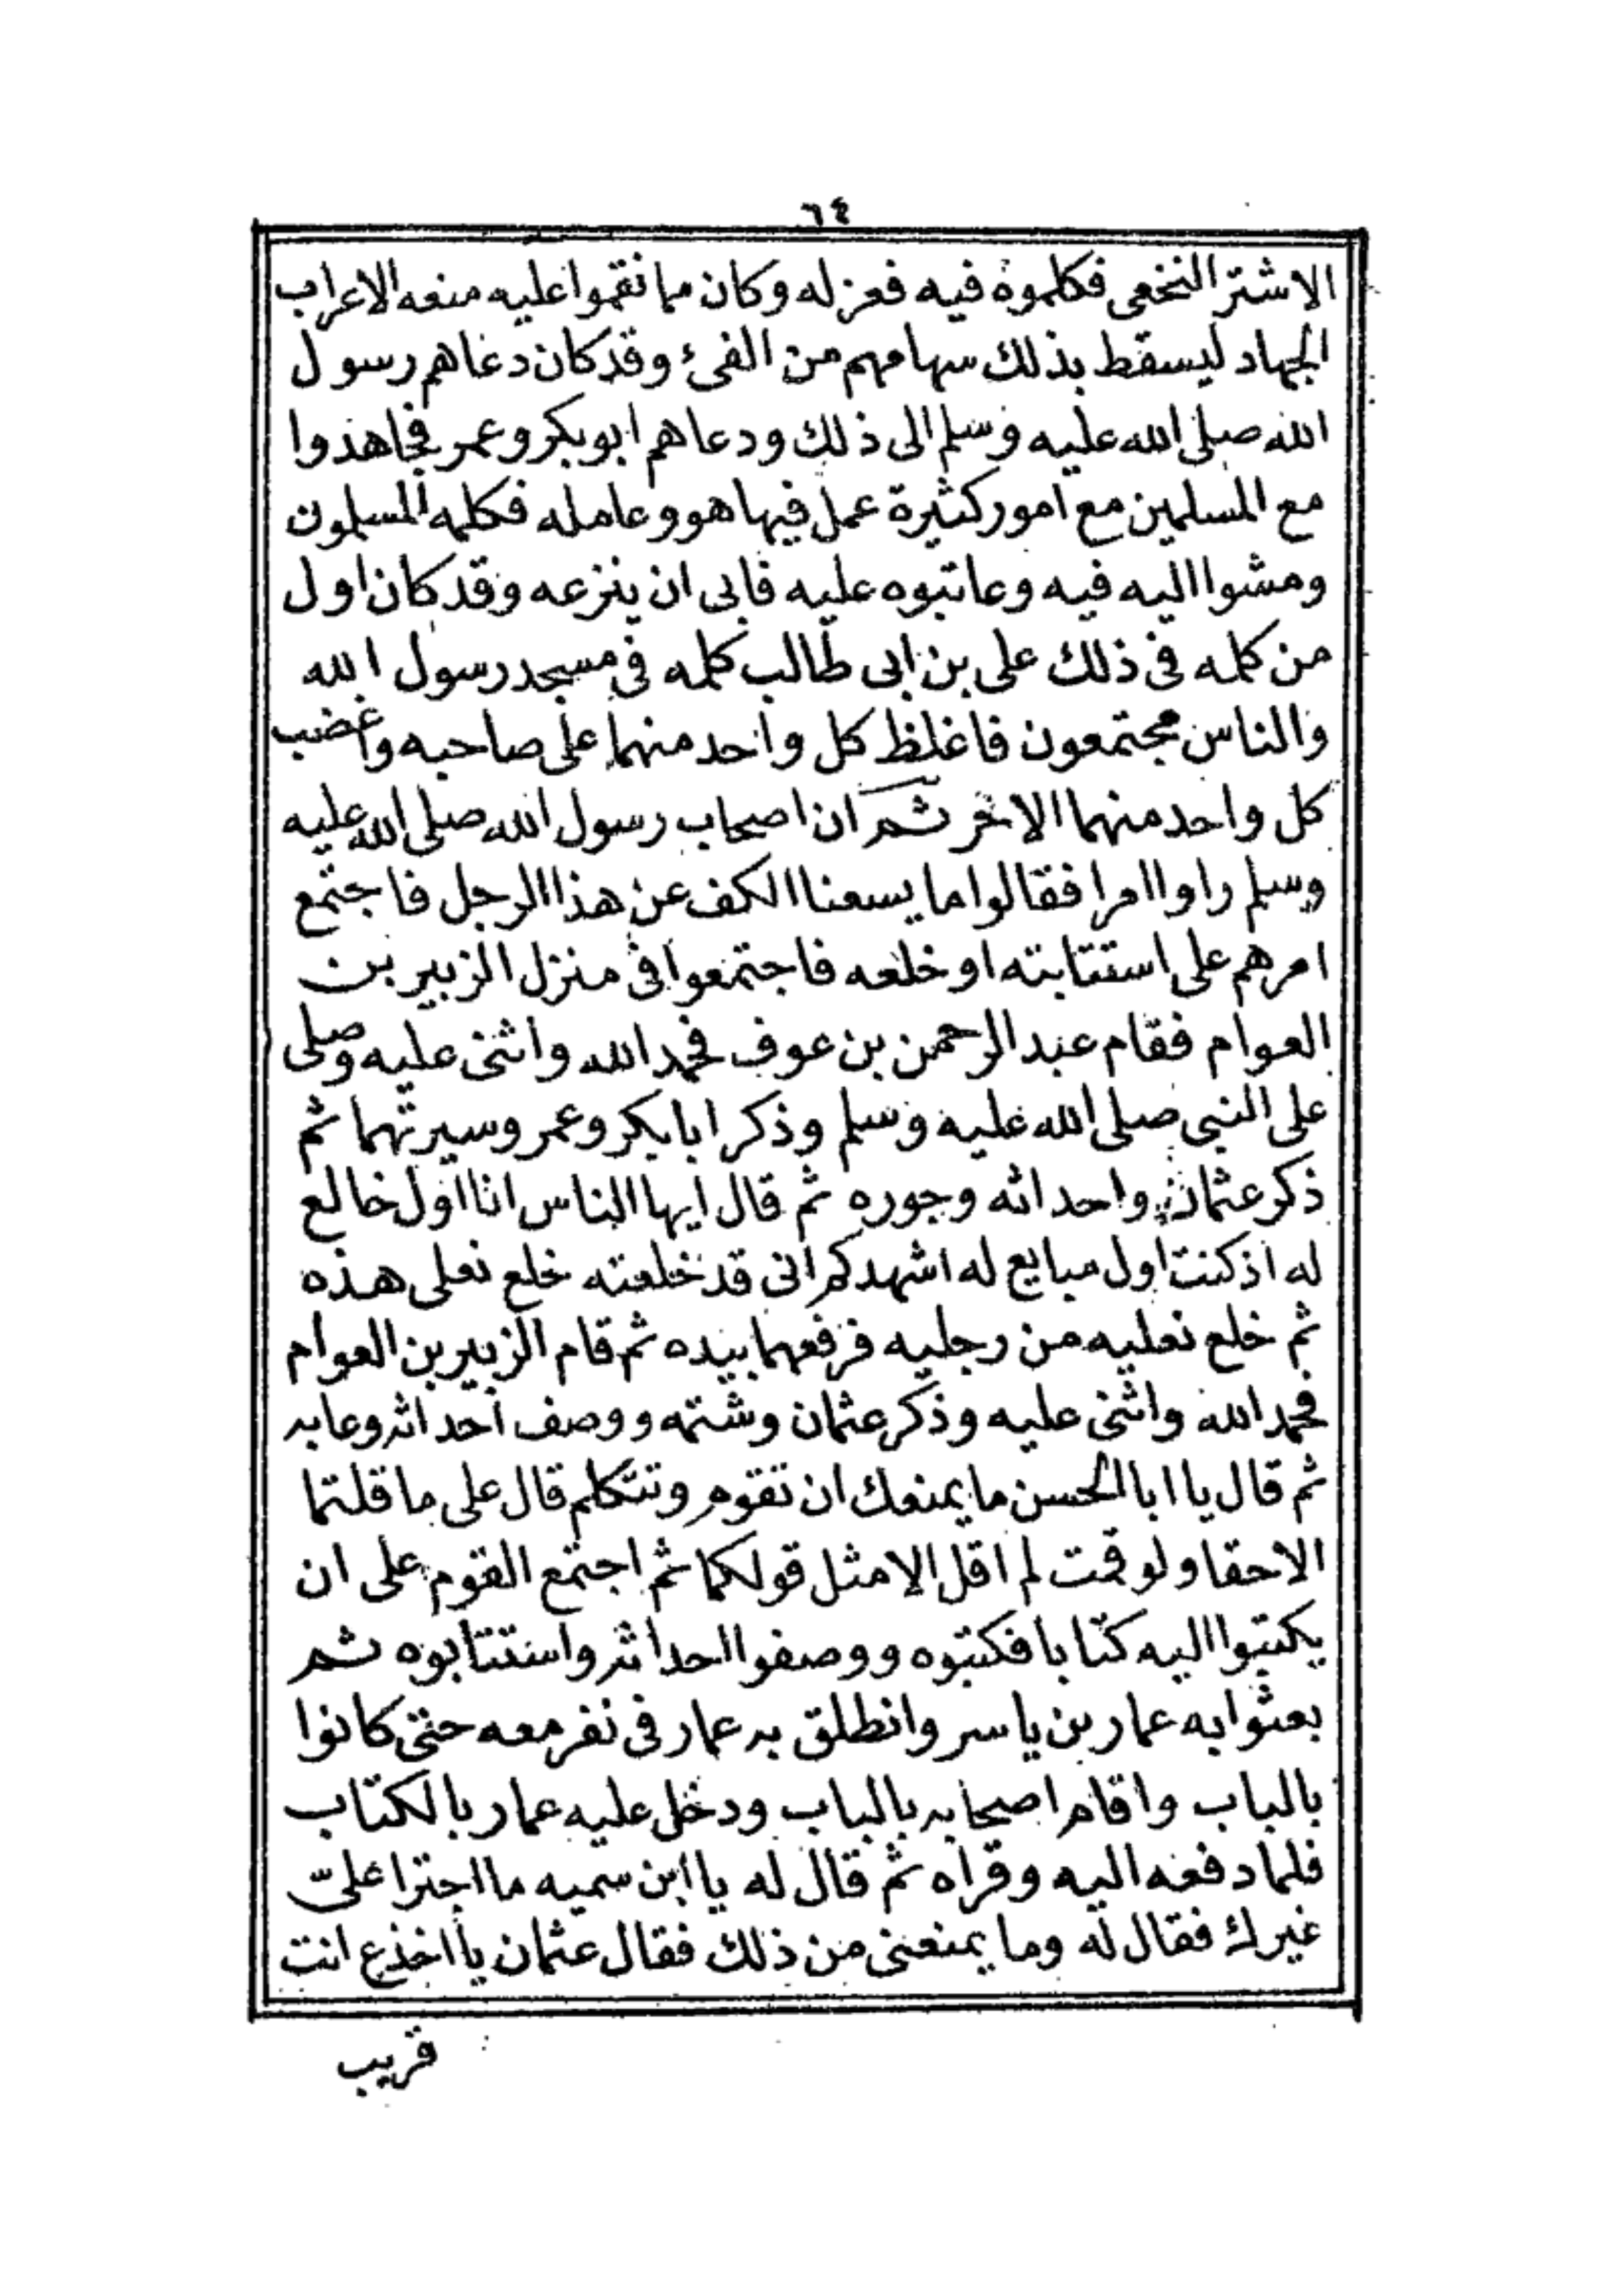 ٦٤
الاشتر النخعى فكلموه فيه فعزله وكان مما نقموا عليه منعه الاعراب
الجهاد ليسقط بذلك سهامهم من الفىء وقد كان دعاهم رسول
الله صلى الله عليه وسلم الى ذلك ودعاهم ابو بكر وعمر فجاهدوا
مع المسلمين مع امور كثيرة عمل فيها هو وعامله فكلمه المسلمون
ومشوا اليه فيه وعاتبوه عليه فابى ان ينزعه وقد كان اول
من كلمه فى ذلك على بن ابى طالب كلمه فى مسجد رسول الله
والناس مجتمعون فاغلظ كل واحد منهما على صاحبه واغضب
كل واحد منهما الاخر ثم ان اصحاب رسول الله صلى الله عليه
وسلم راوا امرا فقالوا ما يسعنا الكف عن هذا الرجل فاجتمع
امرهم على استتابته او خلعه فاجتمعوا فى منزل الزبير بن
العوام فقام عبد الرحمن بن عوف فحمد الله واثنى عليه وصلى
على النبى صلى الله عليه وسلم وذكر ابا بكر وعمر وسيرتهما ثم
ذكر عثمان واحداثه وجوره ثم قال ايها الناس انا اول خالع
له اذ كنت اول مبايع له اشهدكم انى قد خلعته خلع نعلى هذه
ثم خلع نعليه من رجليه فرفعهما بيده ثم قام الزبير بن العوام
فحمد الله واثنى عليه وذكر عثمان وشتمه ووصف احداثه وعابه
ثم قال يا ابا الحسن ما يمنعك ان تقوم وتتكلم قال على ما قلتما
الاحقا ولو قمت لم اقل الا مثل قولكما ثم اجتمع القوم على ان
يكتبوا اليه كتابا فكتبوه ووصفوا احداثه واستتابوه ثم
بعثوا به عمار بن ياسر وانطلق به عمار فى نفر معه حتى كانوا
بالباب واقام اصحابه بالباب ودخل عليه عمار بالكتاب
فلما دفعه اليه وقراه ثم قال له يا ابن سميه ما اجترا علىّ
غيرك فقال له وما يمنعنى من ذلك فقال عثمان يا اخذع انت
قريب